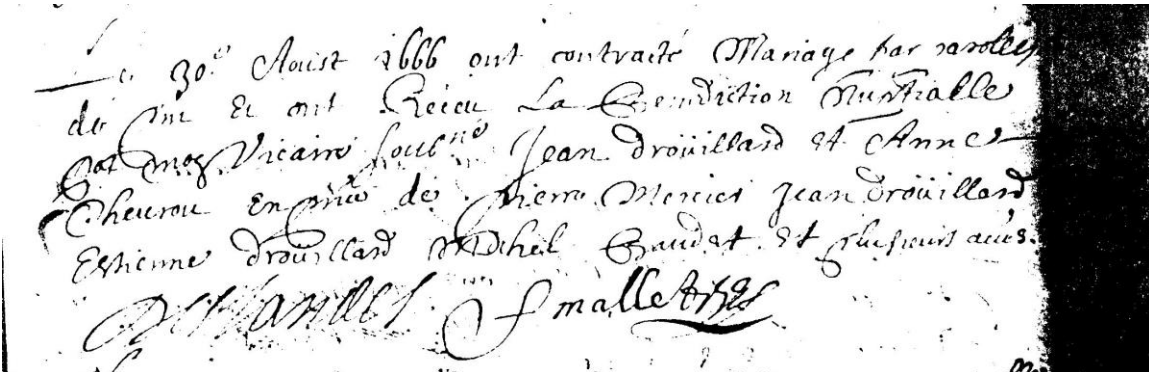 Le 30e Aoust 1666 ont contraité Mariage par parolles
de pnt Et ont Receu La Benediction Nuptialle
par moy Vicaire soubne Jean Droüillard et Anne
Cheurou En pnce de Pierre Mercier Jean Droüillard
Estienne Droüillard Michel Baudat et plusieurs aües.